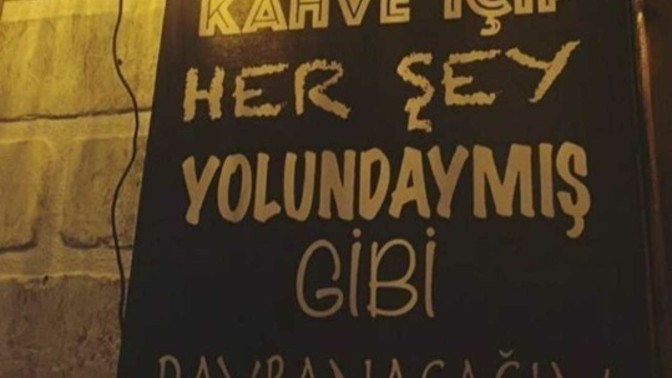 KAHVE İÇİP
HER ŞEY
YOLUNDAYMIŞ
GİBİ
DAVRANACAĞIM